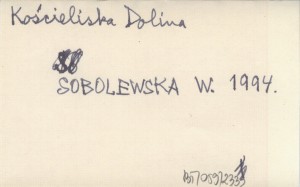 Kościeliska Dolina
SOBOLEWSKA W. 1994.